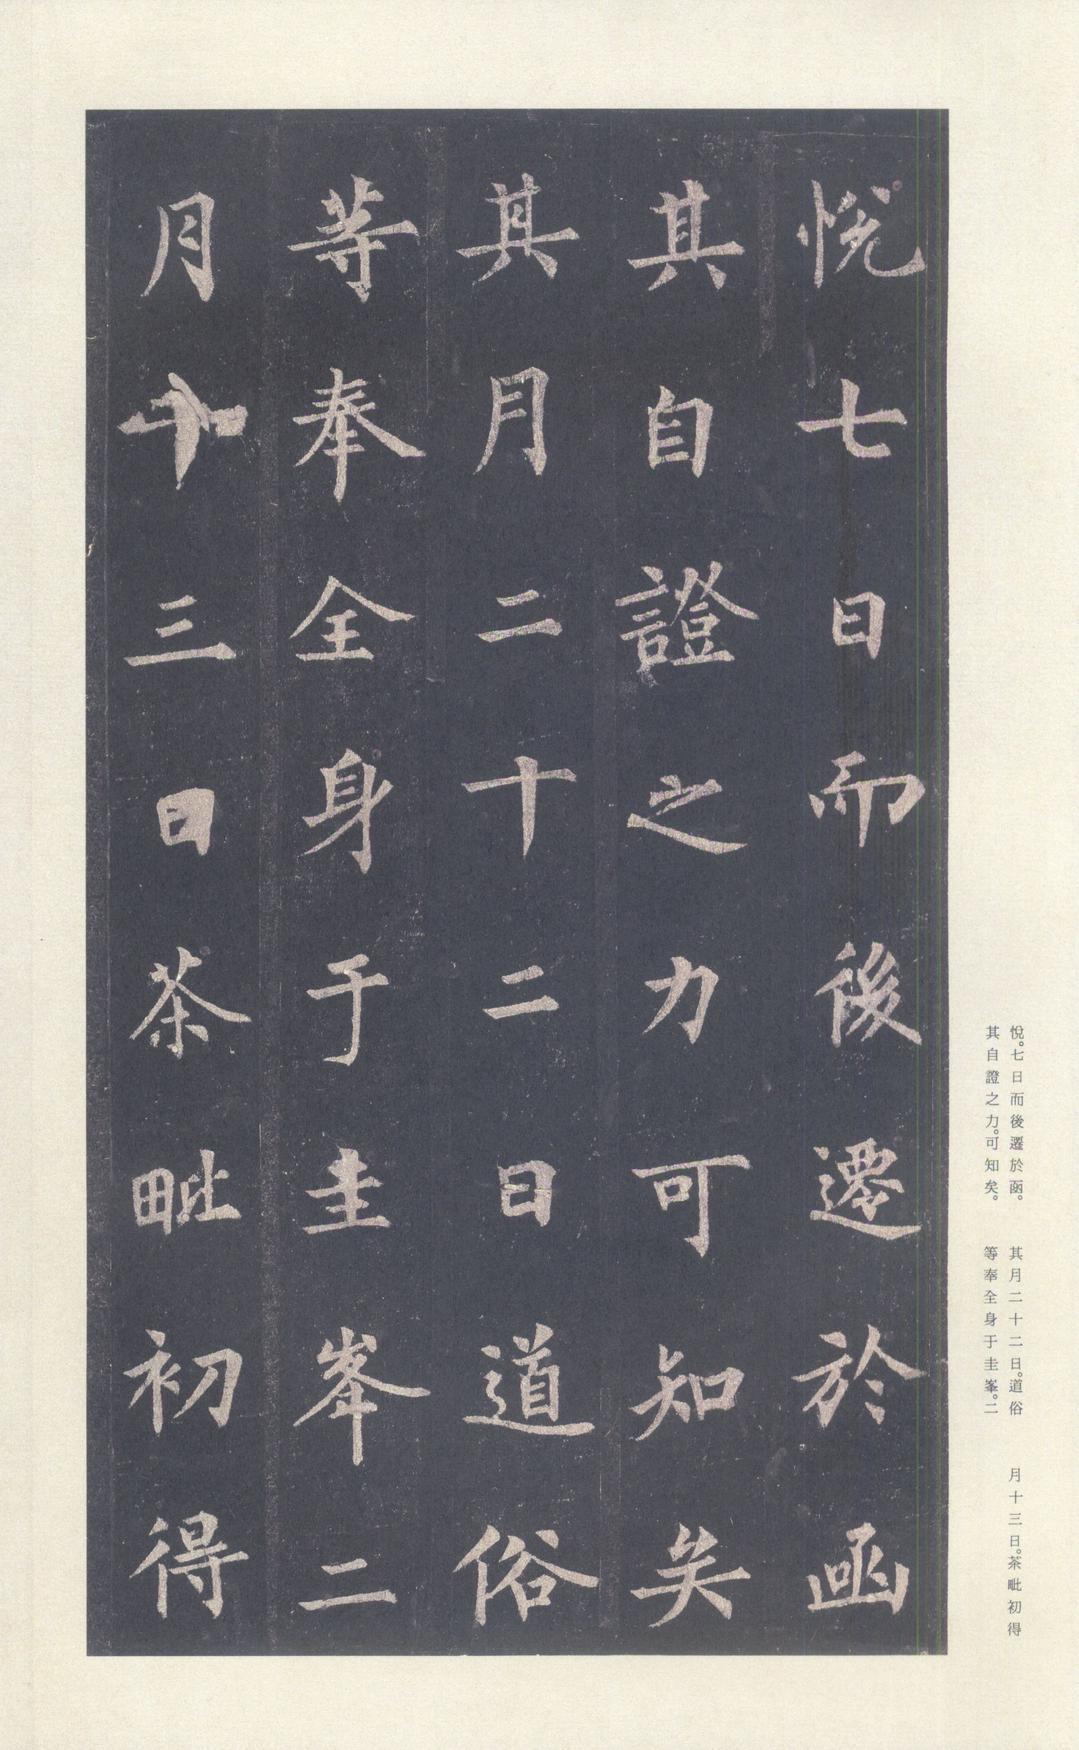 悅七日而後遷於函
其自證之力可知矣
其月二十二日道俗
等奉全身于圭峯二
月十三日茶毗初得
悅。七日而後遷於函。
其自證之力。可知矣。
其月二十二日。道俗
等奉全身于圭峯。二
月十三日。茶毗初得